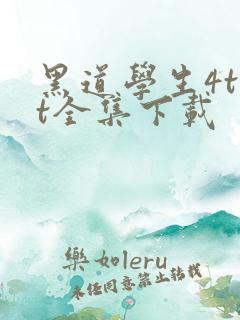 黑道學生4t
t全集下載
樂如leru
未经同意禁止转载